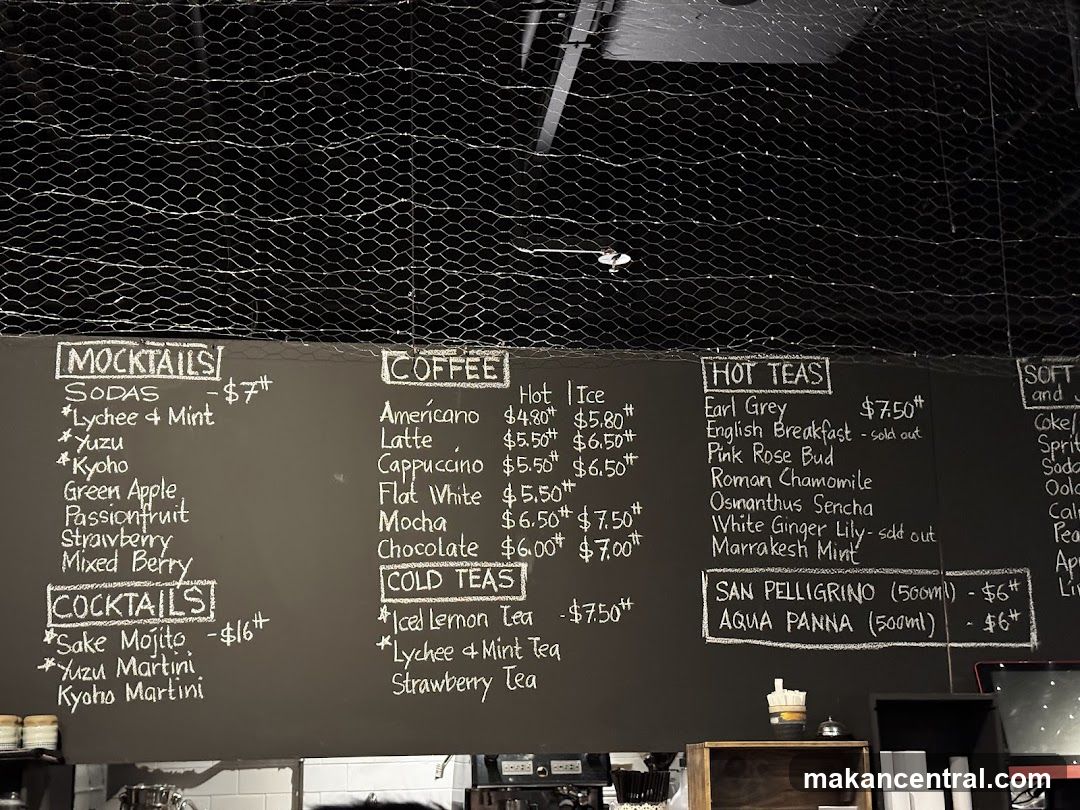 MOCKTAILS
SODAS - $7++
*Lychee & Mint
*Yuzu
*Kyoho
Green Apple
Passionfruit
Strawberry
Mixed Berry
COCKTAILS
*Sake Mojito - $16++
*Yuzu Martini
Kyoho Martini
COFFEE
Hot | Ice
Americano $4.80++ $5.80++
Latte $5.50++ $6.50++
Cappuccino $5.50++ $6.50++
Flat White $5.50++
Mocha $6.50++ $7.50++
Chocolate $6.00++ $7.00++
COLD TEAS
*Iced Lemon Tea - $7.50++
*Lychee & Mint Tea
Strawberry Tea
HOT TEAS
Earl Grey $7.50++
English Breakfast - sold out
Pink Rose Bud
Roman Chamomile
Osmanthus Sencha
White Ginger Lily - sold out
Marrakesh Mint
SAN PELLIGRINO (500ml) - $6++
AQUA PANNA (500ml) - $6++
SOFT
and
Coke/
makancentral.com